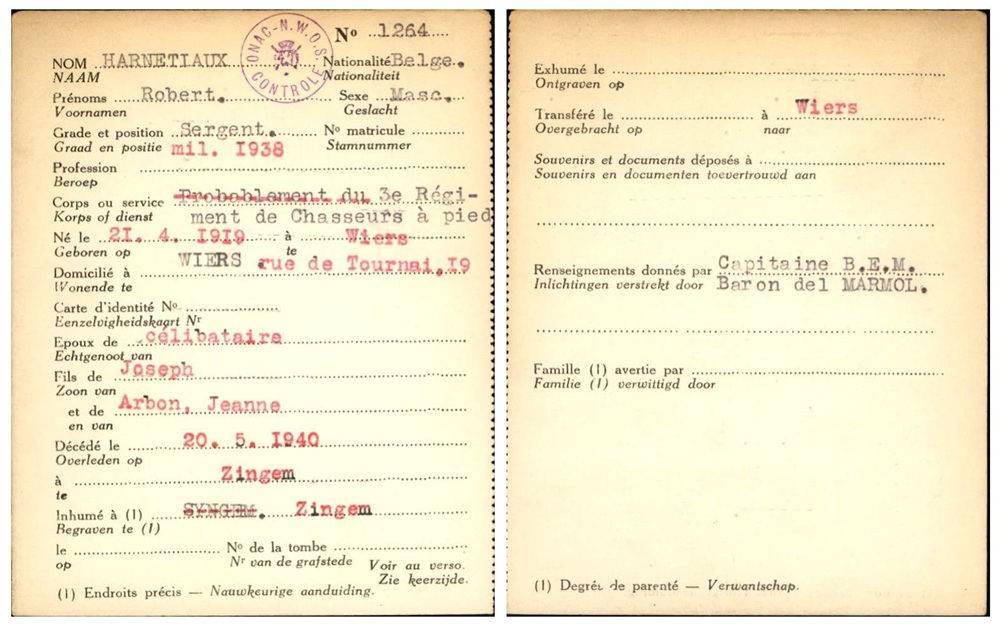 ONAC-N.W.O.S. CONTROLE
No 1264
NOM HARNETIAUX Nationalité Belge.
NAAM Nationaliteit
Prénoms Robert. Sexe Masc.
Voornamen Geslacht
Grade et position Sergent. No matricule
Graad en positie mil. 1938 Stamnummer
Profession
Beroep
Corps ou service Probablement du 3e Régi-
Korps of dienst ment de Chasseurs à pied
Né le 21. 4. 1919 à Wiers
Geboren op te
Domicilié à WIERS rue de Tournai,19
Wonende te
Carte d'identité No
Eenzelvigheidskaart Nr
Epoux de célibataire
Echtgenoot van
Fils de Joseph
Zoon van
et de Arbon, Jeanne
en van
Décédé le 20. 5. 1940
Overleden op
à Zingem
te
Inhumé à (1) SYNGEM. Zingem
Begraven te (1)
le No de la tombe
op Nr van de grafstede Voir au verso.
Zie keerzijde.
(1) Endroits précis — Nauwkeurige aanduiding.
Exhumé le
Ontgraven op
Transféré le à Wiers
Overgebracht op naar
Souvenirs et documents déposés à
Souvenirs en documenten toevertrouwd aan
Renseignements donnés par Capitaine B.E.M.
Inlichtingen verstrekt door Baron del MARMOL.
Famille (1) avertie par
Familie (1) verwittigd door
(1) Degré de parenté — Verwantschap.